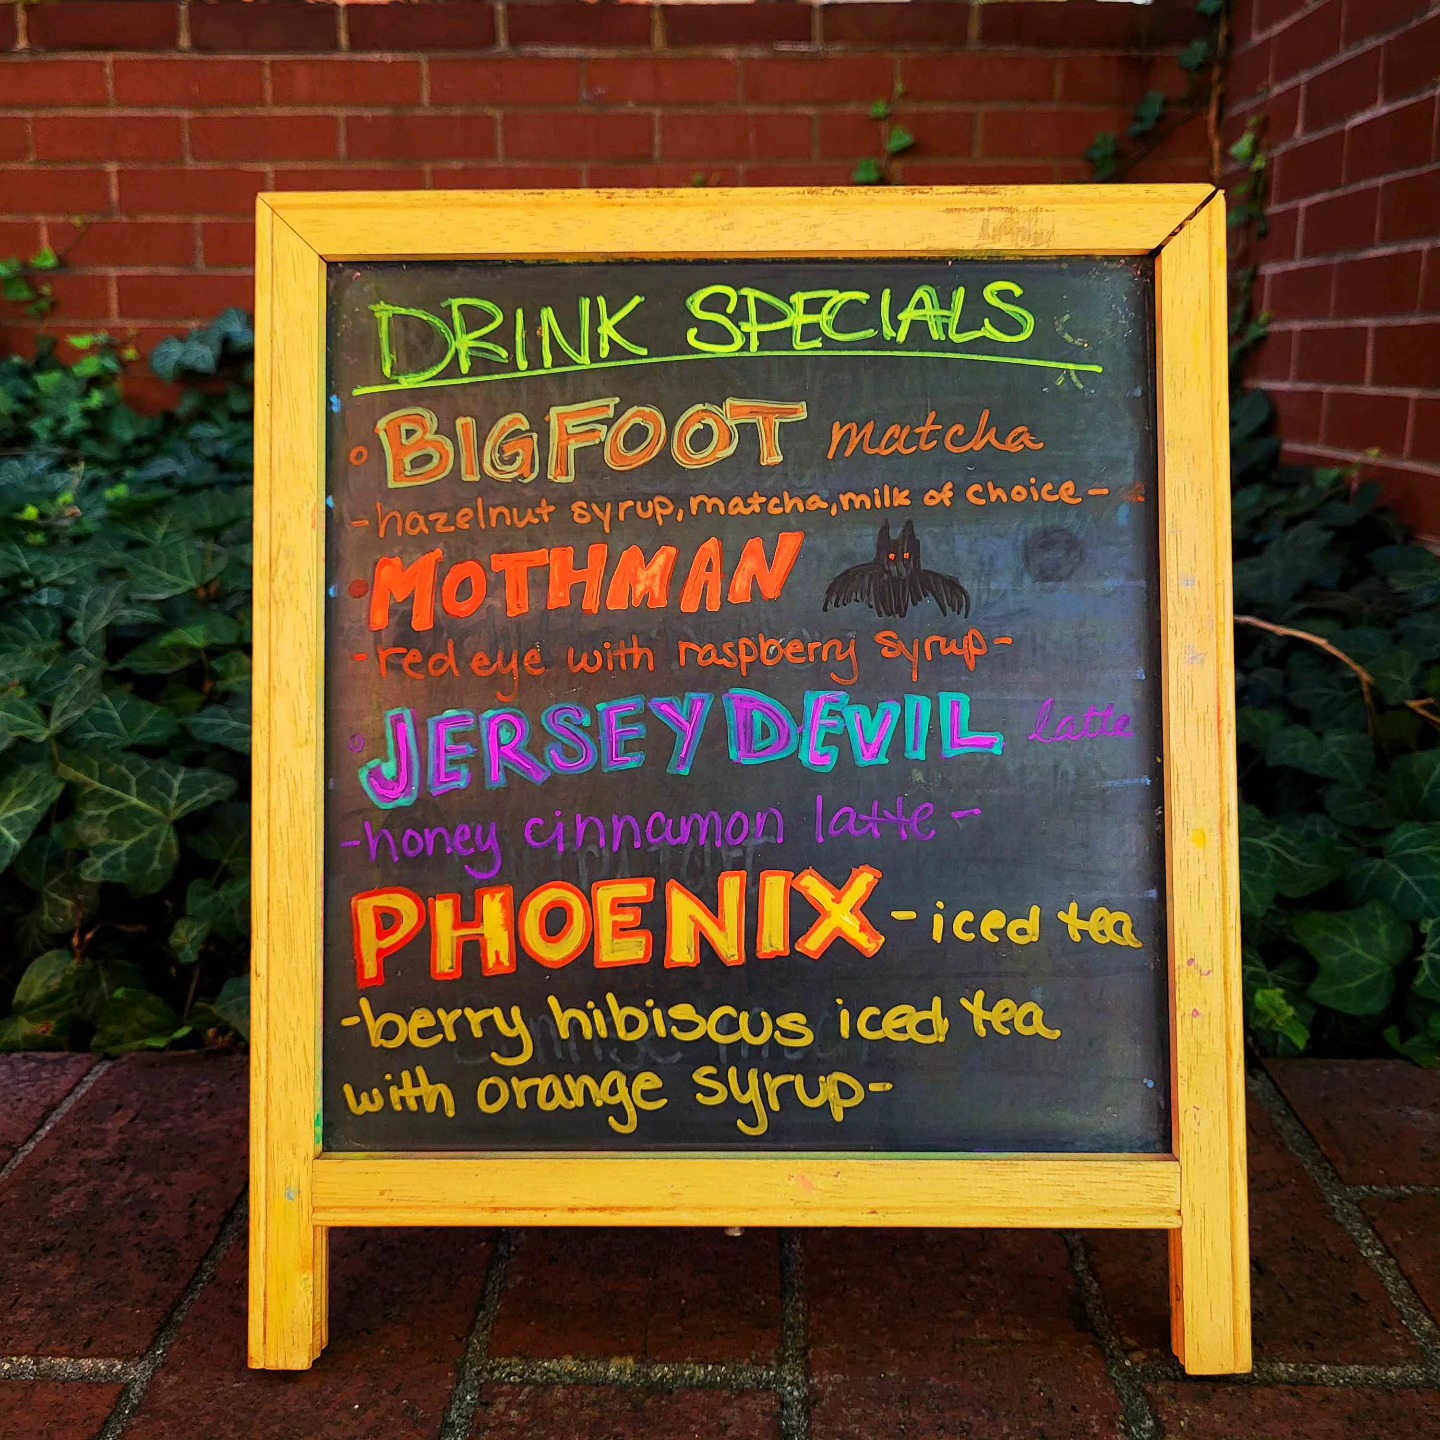 DRINK SPECIALS
BIGFOOT matcha
-hazelnut syrup, matcha, milk of choice-
MOTHMAN
-red eye with raspberry syrup-
JERSEY DEVIL latte
-honey cinnamon latte-
PHOENIX - iced tea
-berry hibiscus iced tea
with orange syrup-